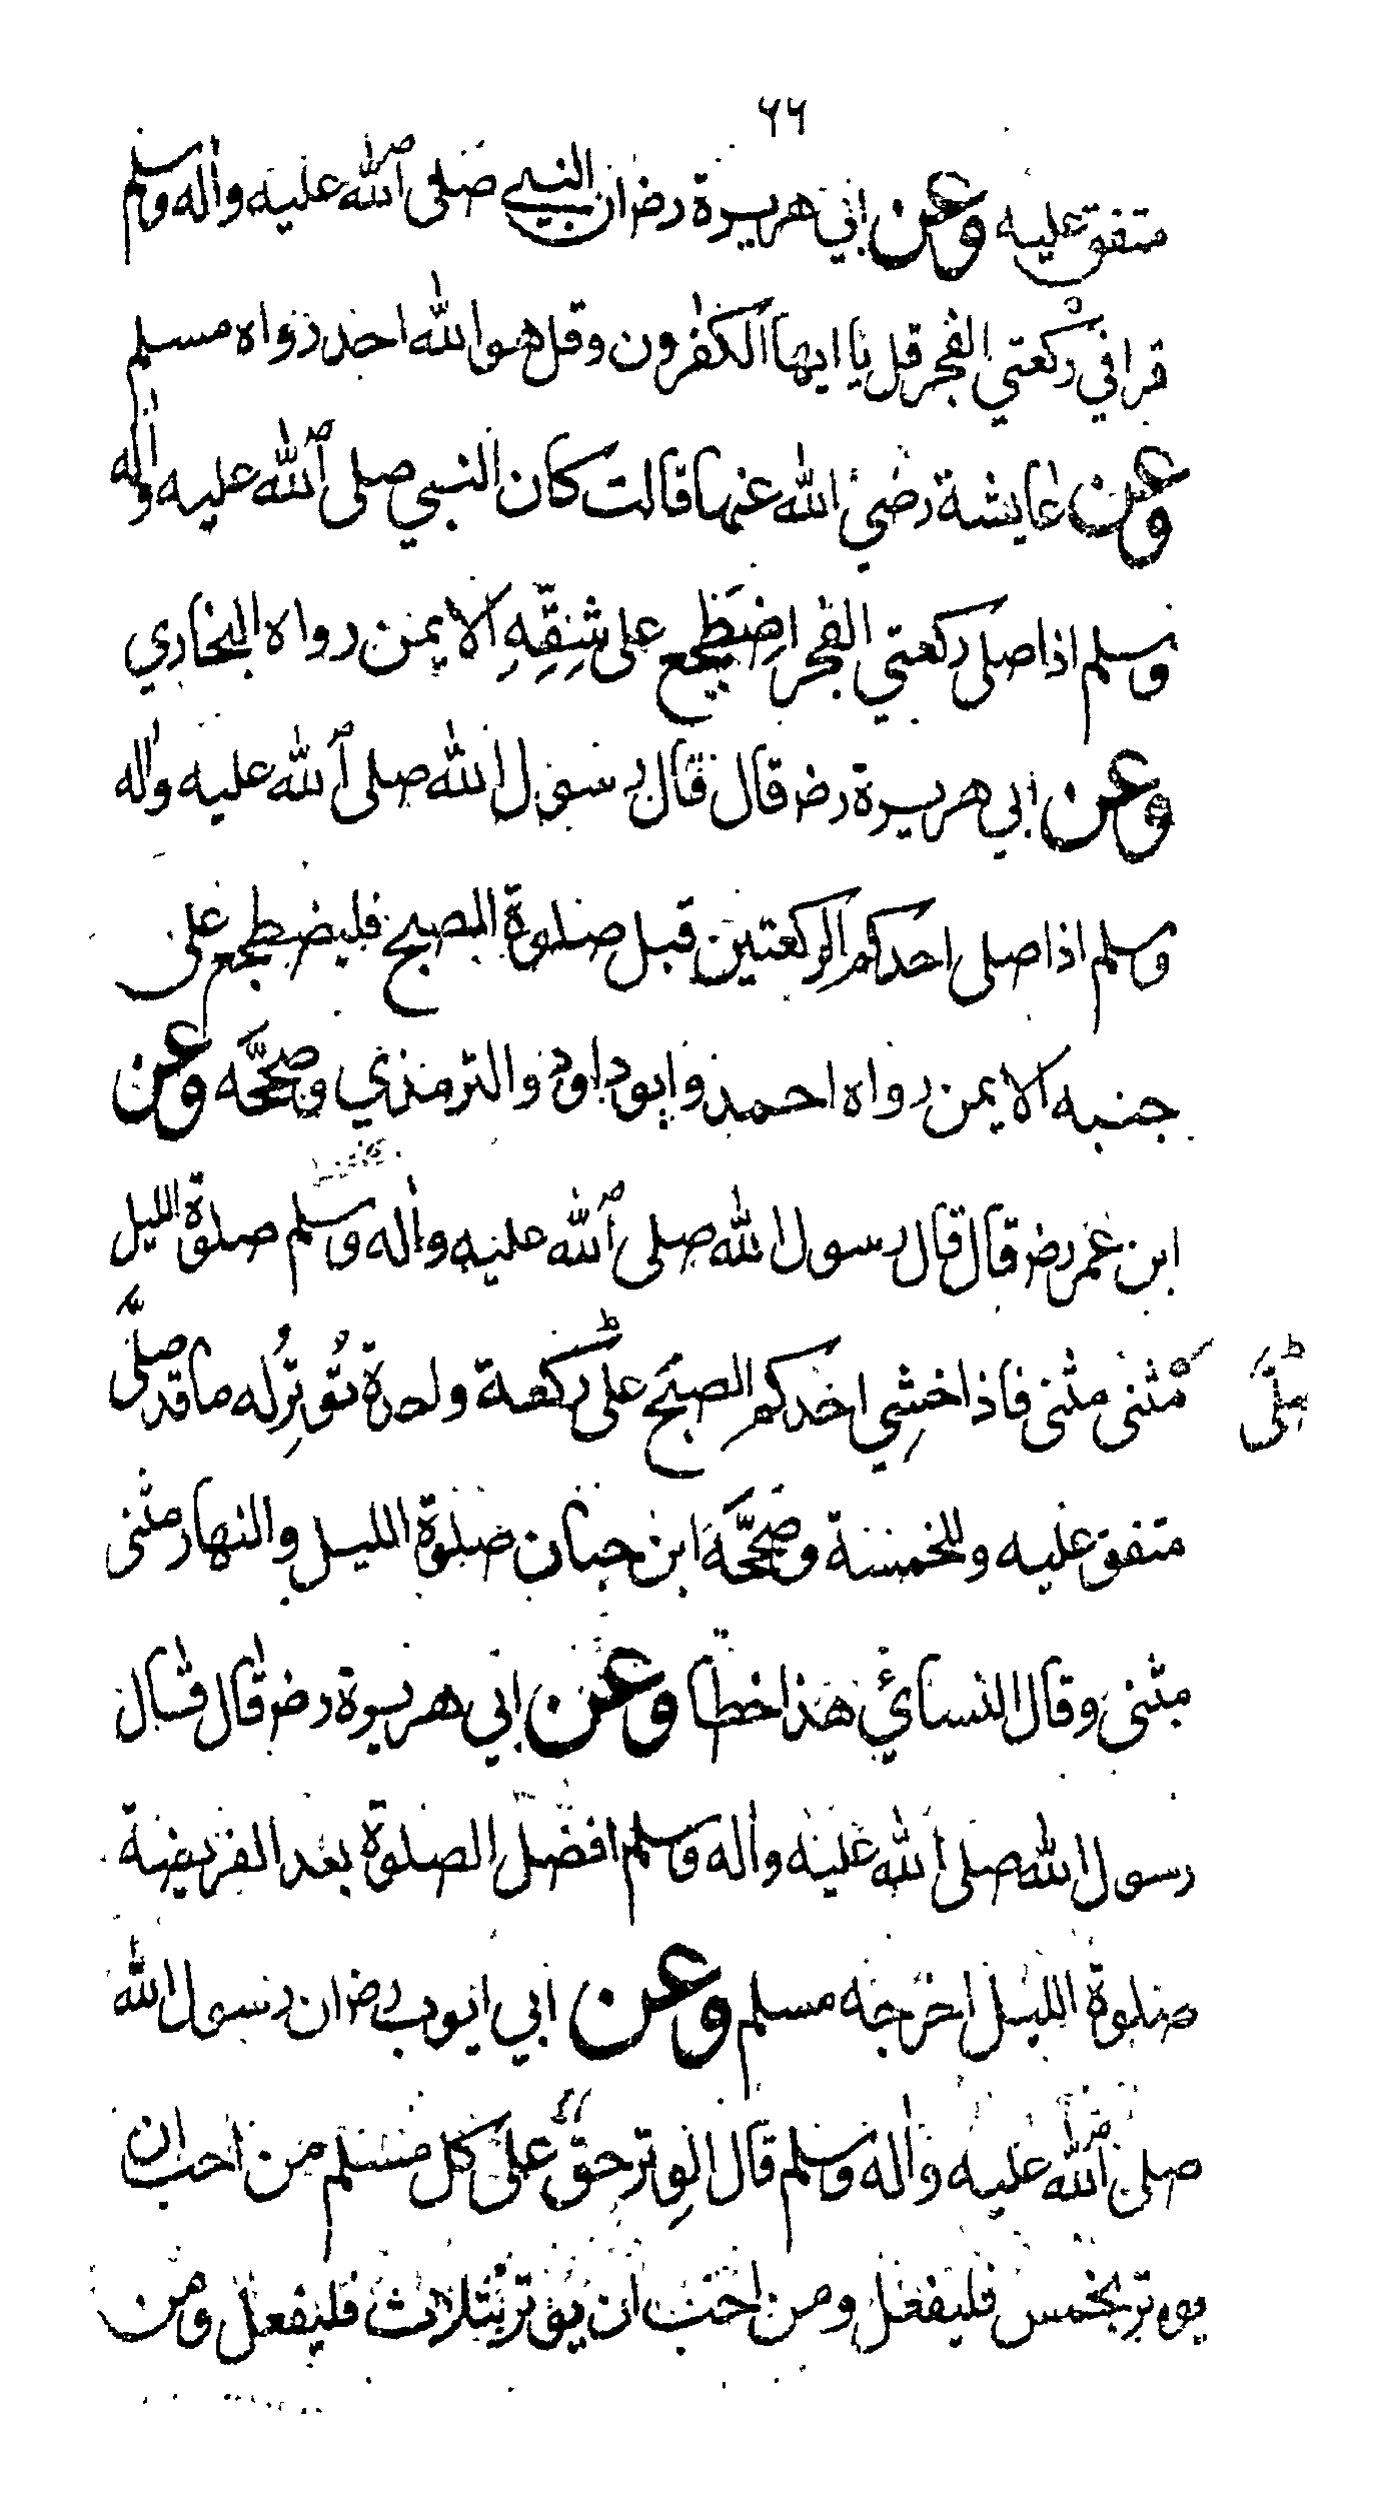 ٦٦
متفق عليه وعن ابي هريرة رض ان النبي صلى الله عليه واله وسلم
قرا في ركعتي الفجر قل يا ايها الكفرون وقل هو الله احد رواه مسلم
وعن عايشة رضي الله عنها قالت كان النبي صلى الله عليه واله
وسلم اذا صلى ركعتي الفجر اضطجع على شِقِّهِ الايمن رواه البخاري
وعن ابي هريرة رض قال قال رسول الله صلى الله عليه واله
وسلم اذا صلى احدكم الركعتين قبل صلوة الصبح فليضطجع على
جنبه الايمن رواه احمد وابو داود والترمذي وصححَّه وعن
ابن عمر رض قال قال رسول الله صلى الله عليه واله وسلم صلوة الليل
مثنى مثنى فاذا خشِي احدكم الصبح صلى ركعة واحدة تُوتِرُ له ما قد صلَّى
صلَّى
متفق عليه وللخمسة وصححَّه ابن حبان صلوة الليل والنهار مثنى
مثنى وقال النسائي هذا خطا وعن ابي هريرة رض قال قال
رسول الله صلى الله عليه واله وسلم افضل الصلوة بعد الفريضة
صلوة الليل اخرجه مسلم وعن ابي ايوب رض ان رسول الله
صلى الله عليه واله وسلم قال الوِتر حق على كل مسلم من احب ان
يوتر بخمس فليفعل ومن احب ان يوتر بثلاث فليفعل ومن